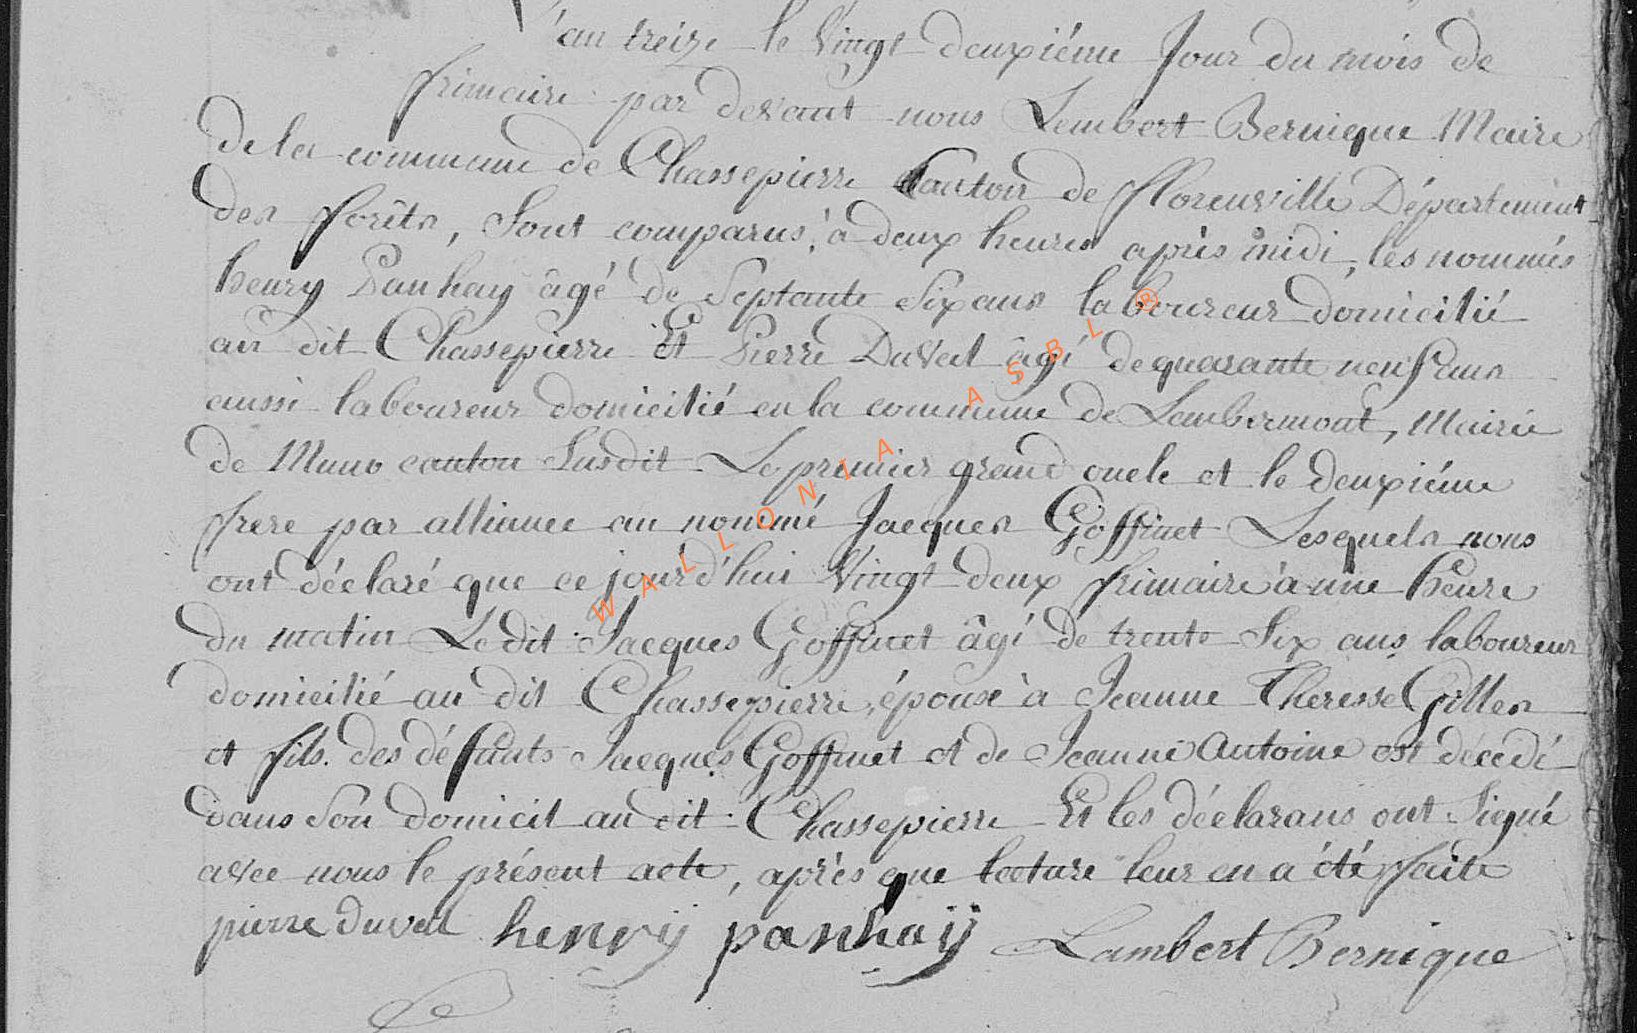 L'an treize le Vingt deuxiéme Jour du mois de
frimaire par devant nous Lembert Bernique Maire
de la commune de Chassepierre Canton de fflorenville Département
des fforêts, Sont comparus, à deux heures après midi, les nommés
henry Panhay âgé de Septante Six ans laboureur domicilié
au dit Chassepierre Et Pierre Duval âgé de quarante neuf ans
aussi laboureur domicilié en la commune de Lambermont, Mairie
de Muno canton Susdit Le premier grand oncle et le deuxiéme
frere par alliance au nommé Jacques Goffinet Lesquels nous
ont déclaré que ce jourd'hui Vingt deux frimaire à une heure
du matin Le dit Jacques Goffinet âgé de trente Six ans laboureur
domicilié au dit Chassepierre, époux à Jeanne Theresse Gilles
et fils des défunts Jacques Goffinet et de Jeanne Antoine est décedé
dans Son domicil au dit Chassepierre Et les déclarans ont Signé
avec nous le présent acte, après que lecture leur en a été faite
pierre duval henry panhaÿ Lambert Bernique
WALLONIA ASBL ®